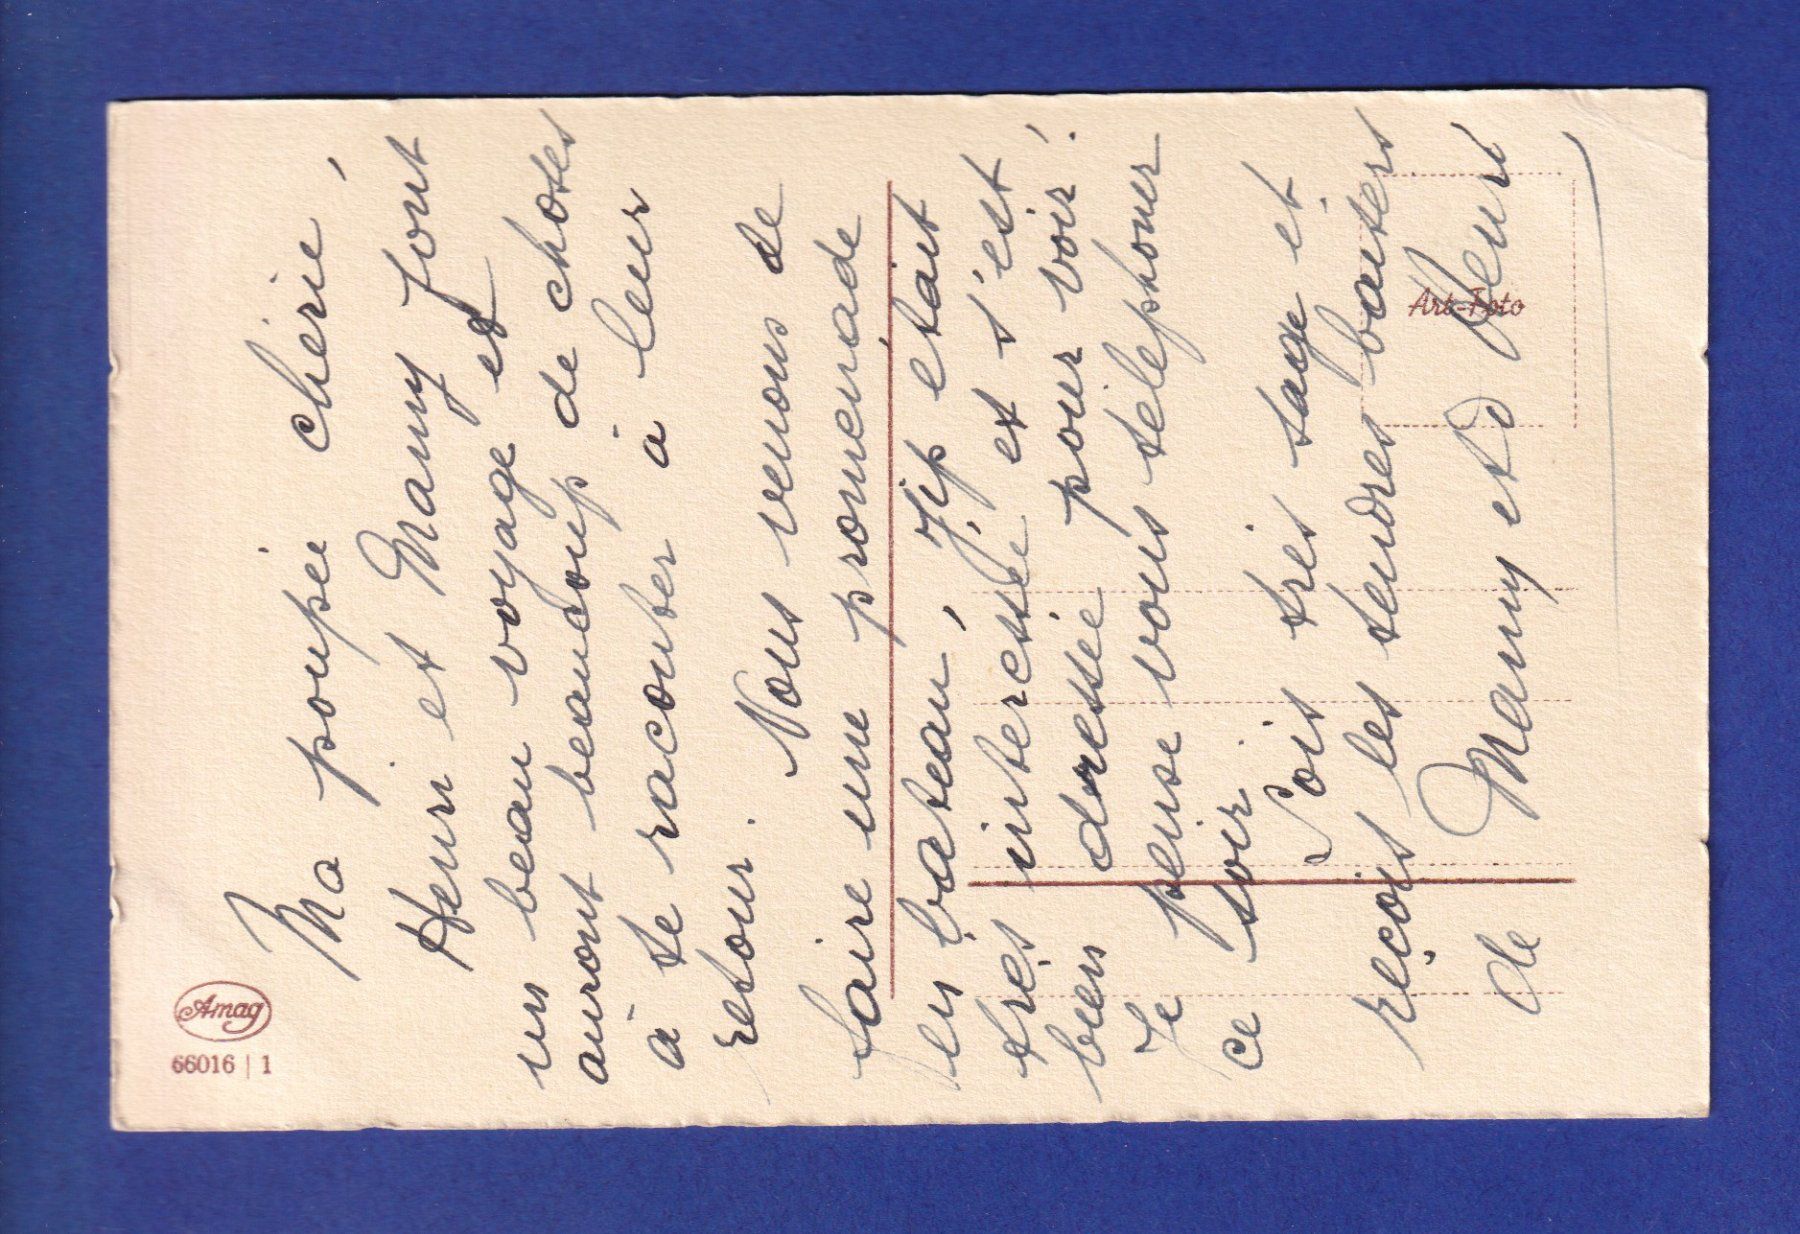 Ma poupée chérie,
Henri et Mamy font
un beau voyage et
auront beaucoup de choses
à te raconter à leur
retour. Nous venons de
faire une promenade
en bateau, Jip etait
très interessée et s'est
bien dressée pour voir!
Je pense vous telephoner
ce soir. Sois très sage et
reçois les tendres baisers
de Mamy et d Henri
Amag
66016 | 1
Art-Foto